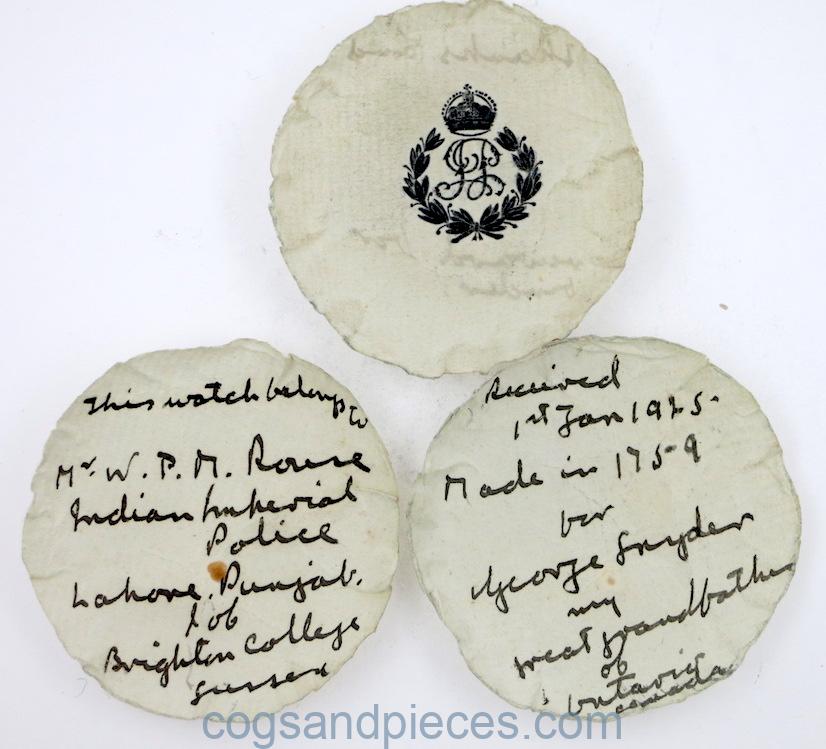 This watch belongs to
Mr W. P. M. Rouse
Indian Imperial
Police
Lahore, Punjab.
& of
Brighton College
Sussex
Received
1st Jan 1925.
Made in 1759
for
George Snyder
my
great grandfather
of
Ontario
Canada
cogsandpieces.com